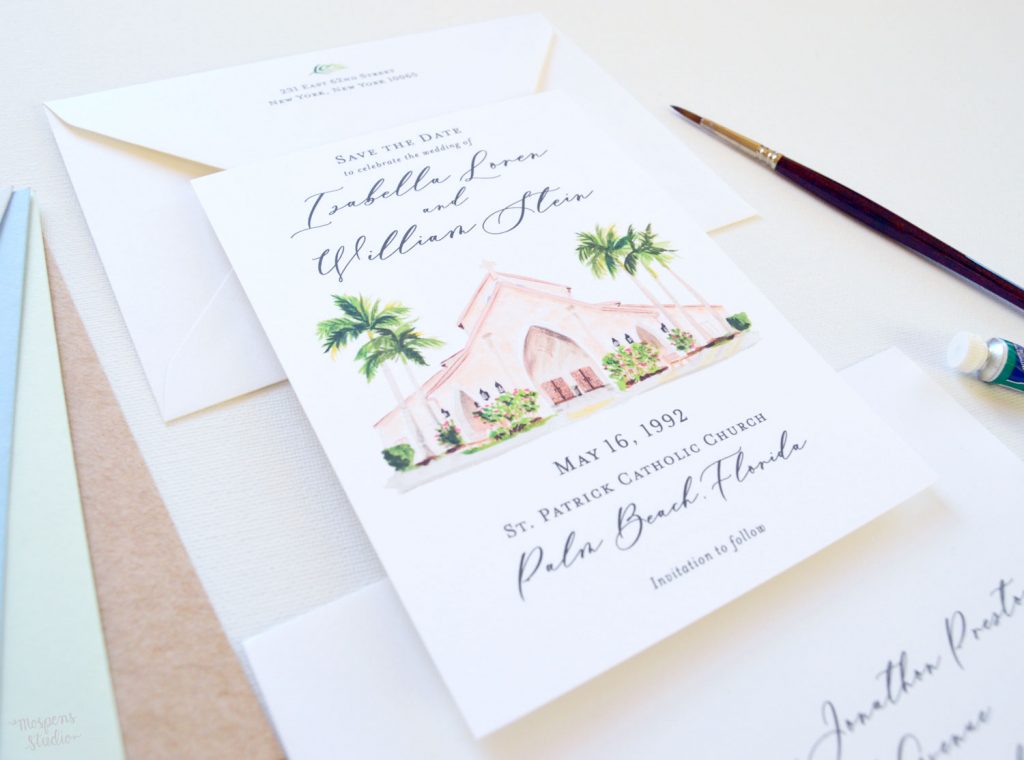 231 East 62nd Street
New York, New York 10065
Save the Date
to celebrate the wedding of
Isabella Loren
and
William Stein
May 16, 1992
St. Patrick Catholic Church
Palm Beach, Florida
Invitation to follow
Jonathon
Avenue
Mospens
Studio